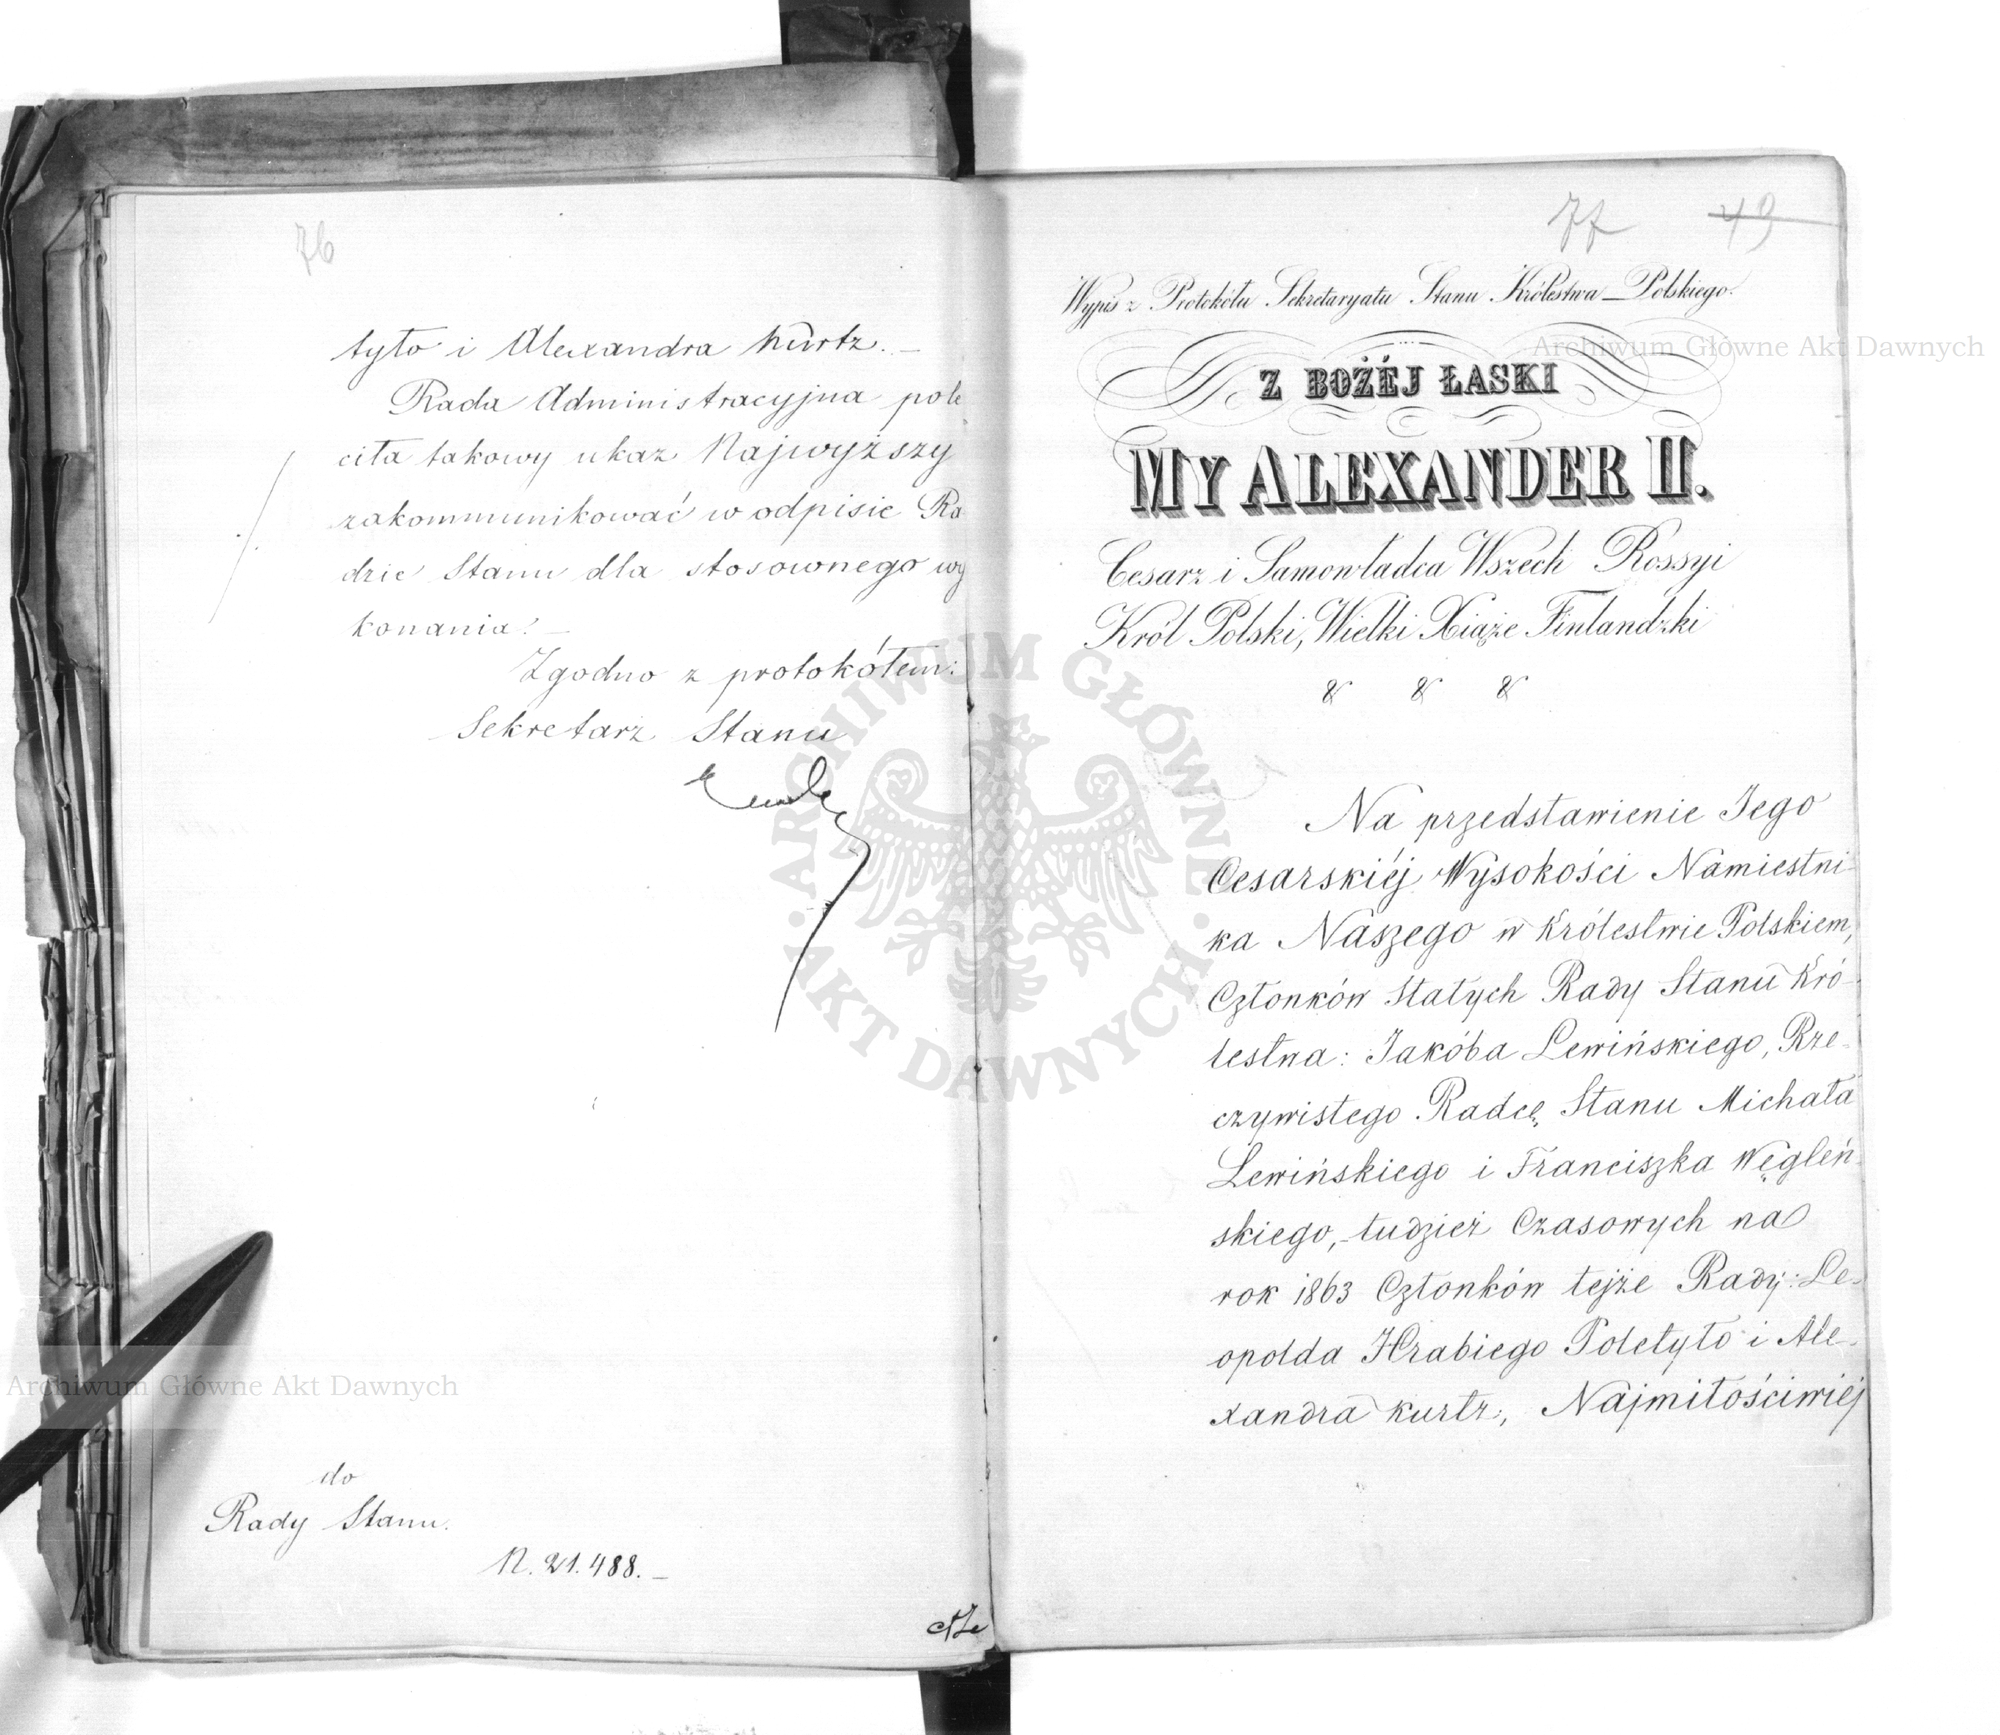 76
tyło i Alexandra Kurtz. —
Rada Administracyjna pole
ciła takowy ukaz Najwyższy
zakommunikować w odpisie Ra
dzie Stanu dla stosownego wy
konania. —
Zgodno z protokółem:
Sekretarz Stanu
do
Rady Stanu.
N. 21.488. —
77 49
Wypis z Protokółu Sekretaryatu Stanu Królestwa Polskiego.
Z BOŻÉJ ŁASKI
MY ALEXANDER II.
Cesarz i Samowładca Wszech Rossyi
Król Polski, Wielki Xiąże Finlandzki
& & &
Na przedstawienie Jego
Cesarskiéj Wysokości Namiestni-
ka Naszego w Królestwie Polskiem,
Członków Stałych Rady Stanu Kró-
lestwa: Jakóba Lewińskiego, Rze-
czywistego Radcę Stanu Michała
Lewińskiego i Franciszka Węgleń-
skiego, tudzież Czasowych na
rok 1863 Członków tejże Rady: Le-
opolda Hrabiego Poletyło i Ale-
xandra Kurtz, Najmiłościwiej
Archiwum Główne Akt Dawnych
Archiwum Główne Akt Dawnych
ARCHIWUM GŁÓWNE · AKT DAWNYCH ·